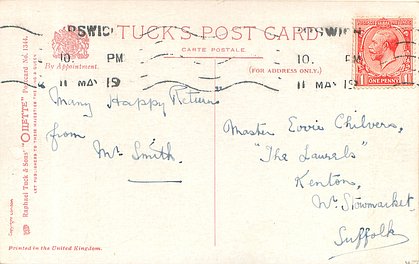 TUCK'S POST CARD
CARTE POSTALE
(FOR ADDRESS ONLY.)
By Appointment.
IPSWICH
10. PM
11 MAY 19
IPSWICH
10. PM
11 MAY 19
ONE PENNY
1 1
Raphael Tuck & Sons' "OILETTE" Postcard No. 1314.
Copyright London
Many Happy Returns
from
Mr Smith.
Master Evvie Chilvers,
"The Laurels"
Kenton,
Nr. Stowmarket
Suffolk
Printed in the United Kingdom.